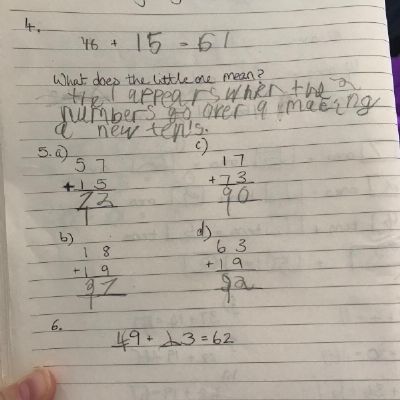 4.
46 + 15 = 61
What does the little one mean?
the 1 appears when the 2
numbers go over 9 making
a new tens.
5. a) c)
57 17
+15 +73
72 90
1 1
b) d)
18 63
+19 +19
37 82
1 1
6.
49 + 13 = 62